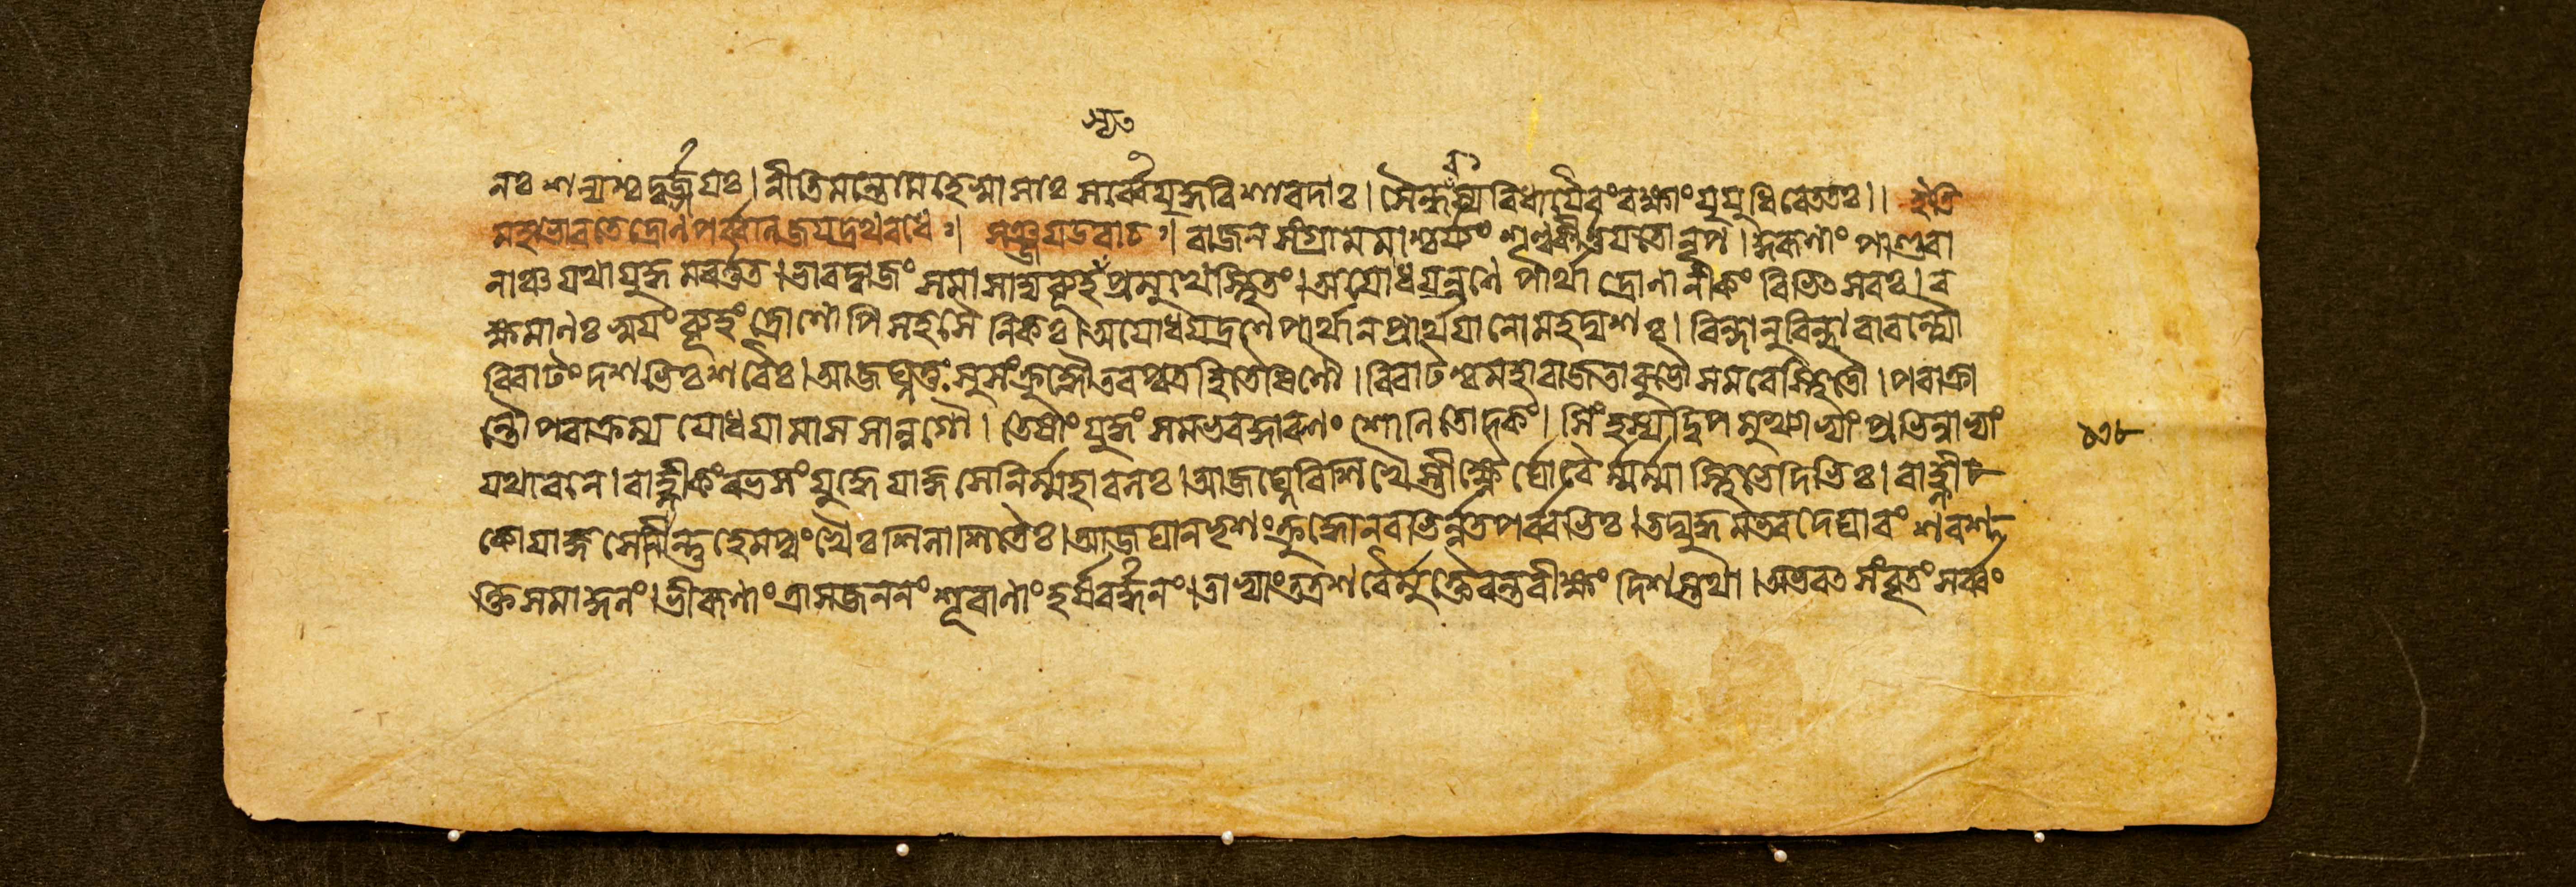 নঃ শল্যশ্চ দুর্জ্জয়ঃ। নীতিমন্তো মহেষ্বাসাঃ সর্ব্বে যুদ্ধবিশারদাঃ। সৈন্ধবস্য বিধায়ৈবং রক্ষাং যুযুধিরে ততঃ।। ইতি
মহাভারতে দ্রোণপর্ব্বনি জয়দ্রথবধেঃ। সঞ্জয় উবাচঃ। রাজন সংগ্রামমাশ্চর্য্যং শৃণু কীর্ত্তয়তো নৃপ। কুরূণাং পাণ্ডবা
নাঞ্চ যথা যুদ্ধমবর্ত্তত। ভারদ্বাজং সমাসাদ্য ব্যূহস্য প্রমুখে স্থিতং। অযোধয়ন্রণে পার্থা দ্রোণানীকং বিভিৎসবঃ। র
ক্ষমানাঃ স্বয়ং ব্যূহং দ্রোণোপি সহ সৈনিকৈঃ। অযোধয়দ্রণে পার্থান প্রার্থয়ানো মহদ্যশঃ। বিন্দানুবিন্দাবাবন্ত্যৌ
বিরাটং দশভিঃ শরৈঃ। আজঘ্নতুঃ সুসংক্রুদ্ধৌ তব পুত্রহিতৈষিণৌ। বিরাটশ্চ মহারাজ তাবুভৌ সমরে স্থিতৌ। পরাক্রা
ন্তৌ পরাক্রম্য যোধয়ামাস সানুগৌ। তেষাং যুদ্ধং সমভবদ্দারুণং শোনিতোদকং। সিংহস্য দ্বিপমুখ্যাভ্যাং প্রভিন্নাভ্যাং
যথা বনে। বাহ্লীকং রভসং যুদ্ধে যাজ্ঞসেনির্ম্মহাবলঃ। আজঘ্নে বিশিখৈস্তীক্ষ্ণৈর্ঘোরৈর্ম্মর্ম্মাস্থিভেদিভিঃ। বাহ্লী
কো যাজ্ঞসেনিন্তু হেমপুংখৈঃ শিলাশিতৈঃ। আজঘান ভৃশং ক্রুদ্ধো নবভির্ন্নতপর্ব্বভিঃ। তদ্যুদ্ধমভবদ্ঘোরং শরশ
ক্তিসমাকুলং। ভীরূণাং ত্রাসজননং শূরাণাং হর্ষবর্দ্ধনং। তাভ্যাং তত্র শরৈর্ম্মুক্তৈরন্তরীক্ষং দিশস্তথা। অভবৎ সংবৃতং সর্ব্বং
১৩৮